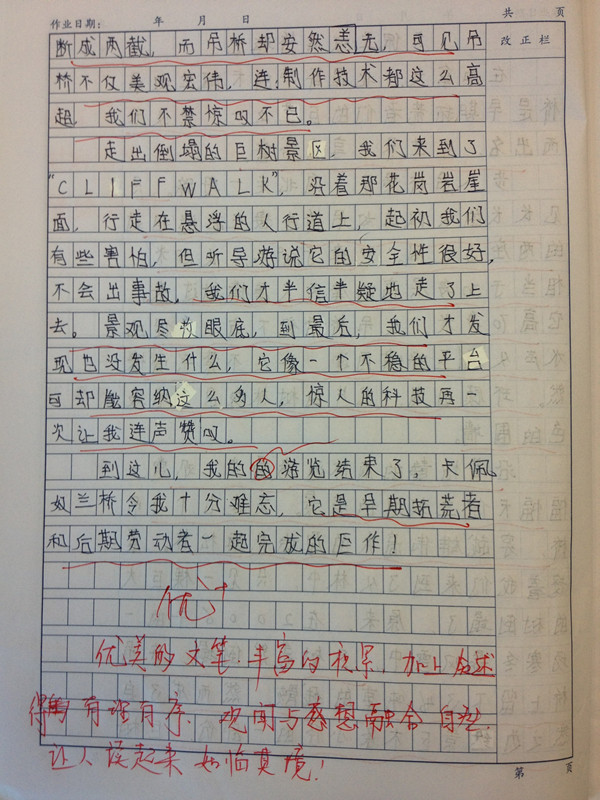 作业日期： 年 月 日 共 页
改正栏
断成两截，而吊桥却安然恙无，可见吊
桥不仅美观宏伟，连制作技术都这么高
超，我们不禁惊叹不已。
走出倒塌的巨树景区，我们来到了
“CLIFFWALK”，沿着那花岗岩崖
面，行走在悬浮的人行道上，起初我们
有些害怕，但听导游说它的安全性很好，
不会出事故，我们才半信半疑地走了上
去。景观尽收眼底，到最后，我们才发
现也没发生什么，它像一个不稳的平台
可却能容纳这么多人，惊人的科技再一
次让我连声赞叹。
到这儿，我的的游览结束了，卡佩
奴兰桥令我十分难忘，它是早期拓荒者
和后期劳动者一起完成的巨作！
优+
优美的文笔，丰富的积累，加上叙述
得 有理有序，观闻与感想融合自然
让人读起来如临其境！
第 页